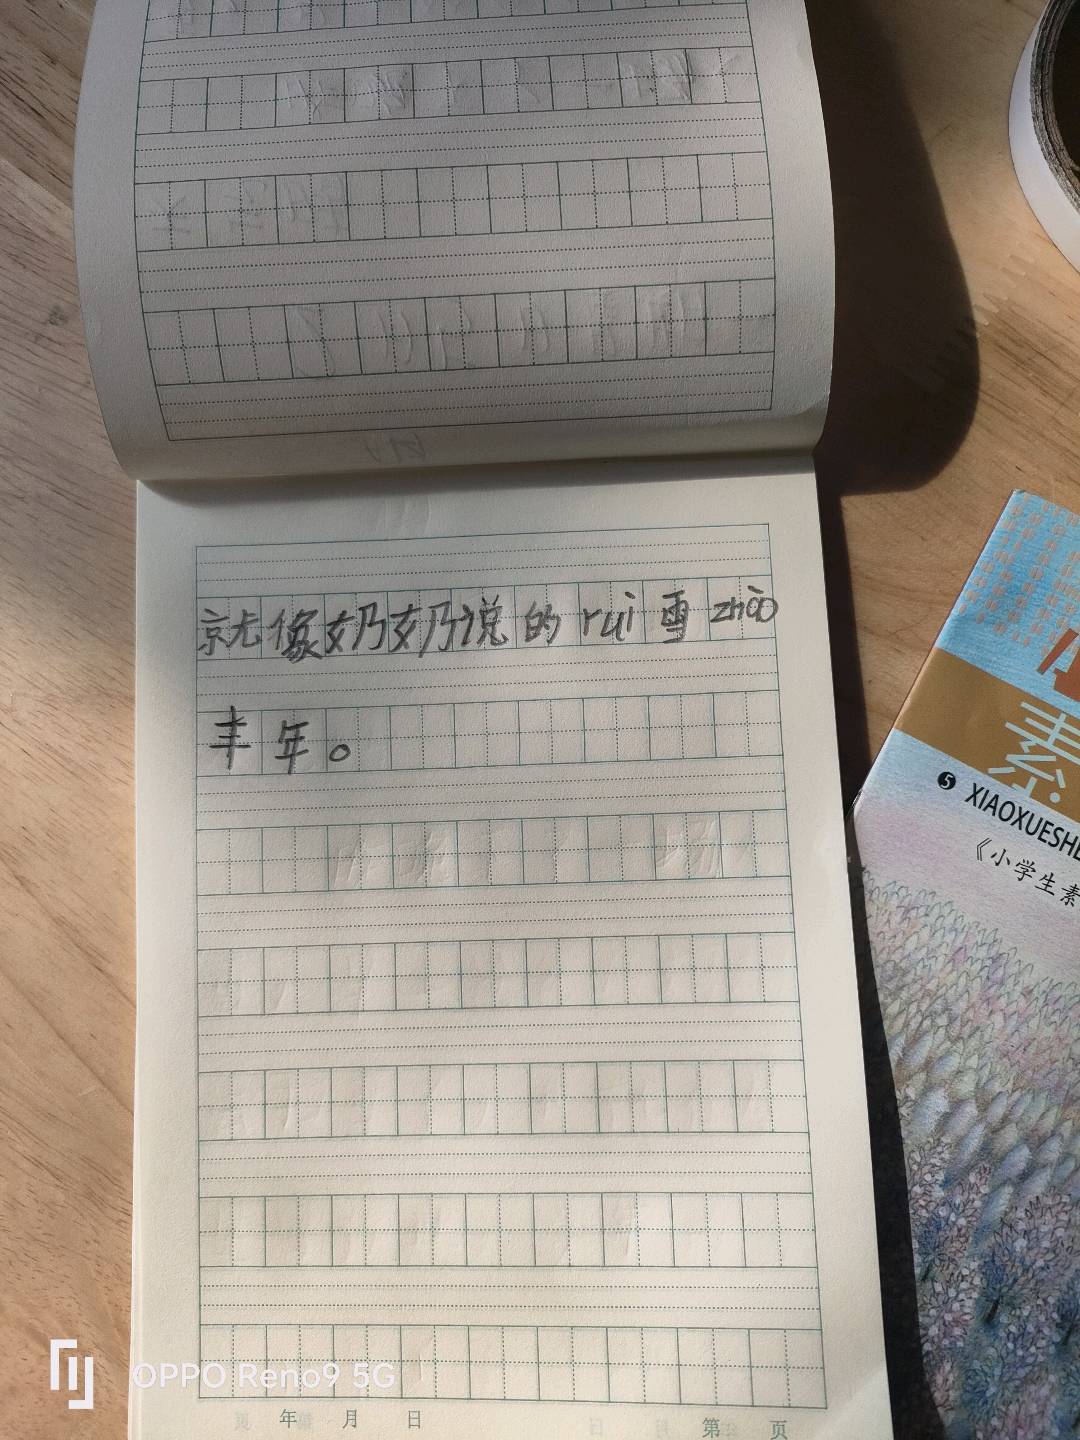 就像奶奶说的rui雪zhào
丰年。
年 月 日
第 页
素
❺ XIAOXUESHE
《小学生素
OPPO Reno9 5G